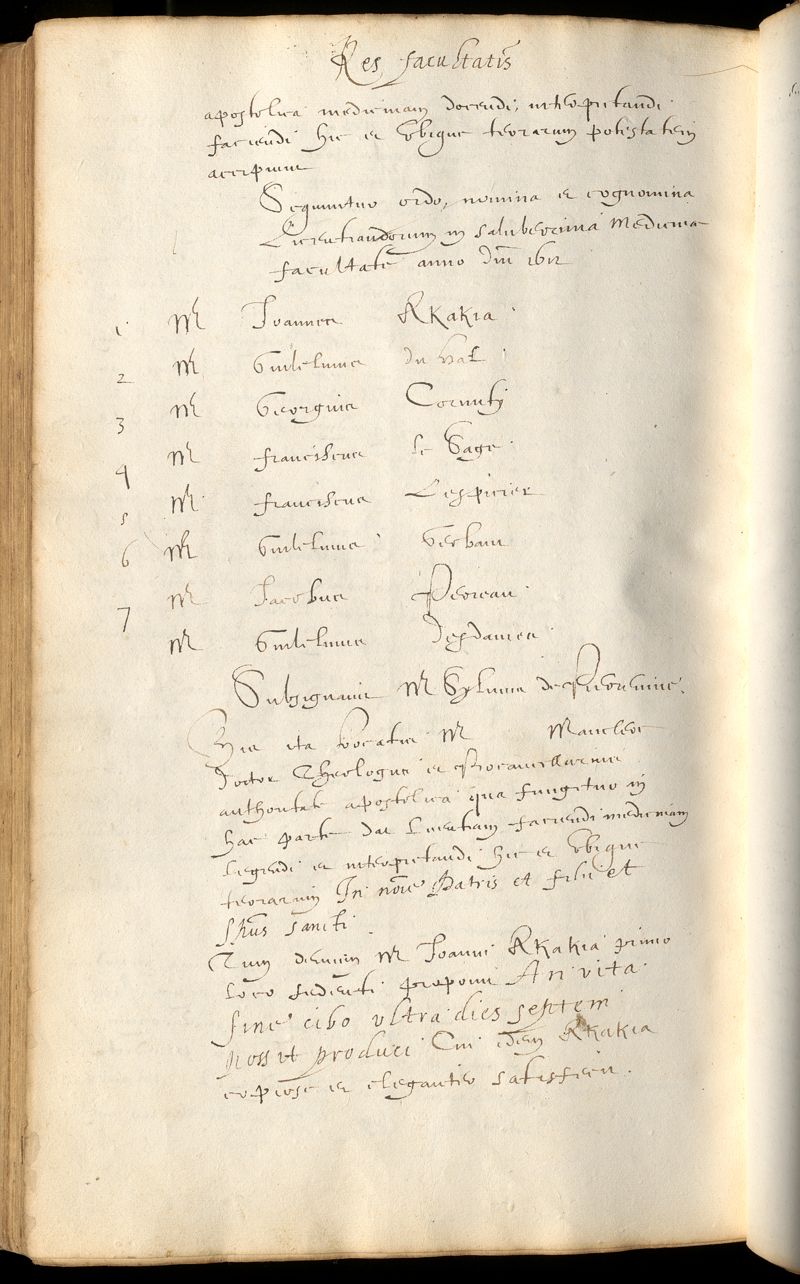 Res facultatis
apostolica medicinam docendi, interpretandi
faciendi hic et ubique terrarum potestatem
accipiunt
Sequuntur ordo, nomina et cognomina
Licentiandorum in saluberrima Medicinae
facultate anno Dni 1612
1 Mr Joannes Akakia
2 Mr Guilelmus du Val
3 Mr Georgius Cornuty
4 Mr franciscus le Sage
5 Mr franciscus Lespicier
6 Mr Guilelmus
7 Mr Jacobus Perreau
Mr Guilelmus Desdames
Subsignavit Mr Sylvius de
His ita vocatis Mr
Doctor Theologus et Procancellarius
authoritate apostolica qua fungitur in
hac parte dat licentiam faciendi medicinam
legendi et interpretandi hic et ubique
terrarum In noie Patris et filii et
spus sancti
Tum demum Mr Joanni Akakia primo
loco sedenti proponit An vita
sine cibo ultra dies septem
possit produci Cui idem Akakia
copiose et eleganter satisfecit.